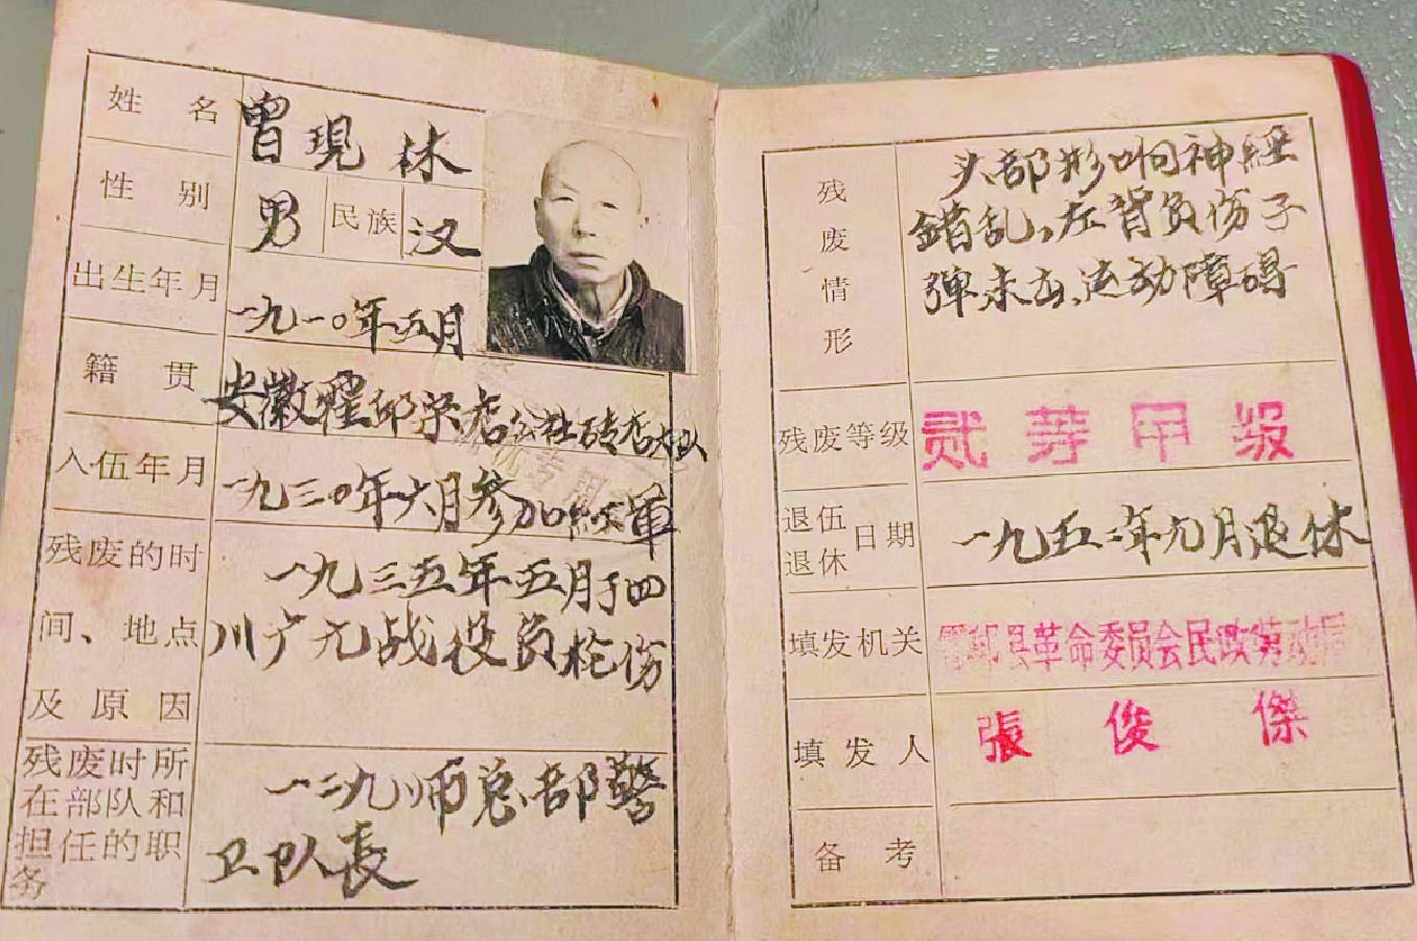 姓名 曾現休
性别 男 民族 汉
出生年月 一九一〇年五月
籍贯 安徽霍邱宋店公社砖店大队
入伍年月 一九三〇年六月参加紅軍
残废的时间、地点及原因 一九三五年五月于四
川广元战役负枪伤
残废时所在部队和担任的职务 一二九师总部警
卫队長
残废情形 头部影响神経
错乱,左背负伤子
弹未出,运动障碍
残废等级 贰等甲级
退伍退休日期 一九五一年九月退休
填发机关 霍邱县革命委员会民政劳动局
填发人 張俊傑
备考
专用